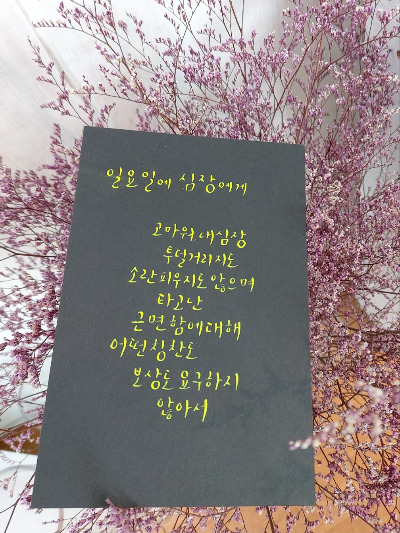 일요일에 심장에게
고마워, 내심장
투덜거리지도
소란피우지도 않으며
타고난
근면함에대해
어떤칭찬도
보상도 요구하지
않아서